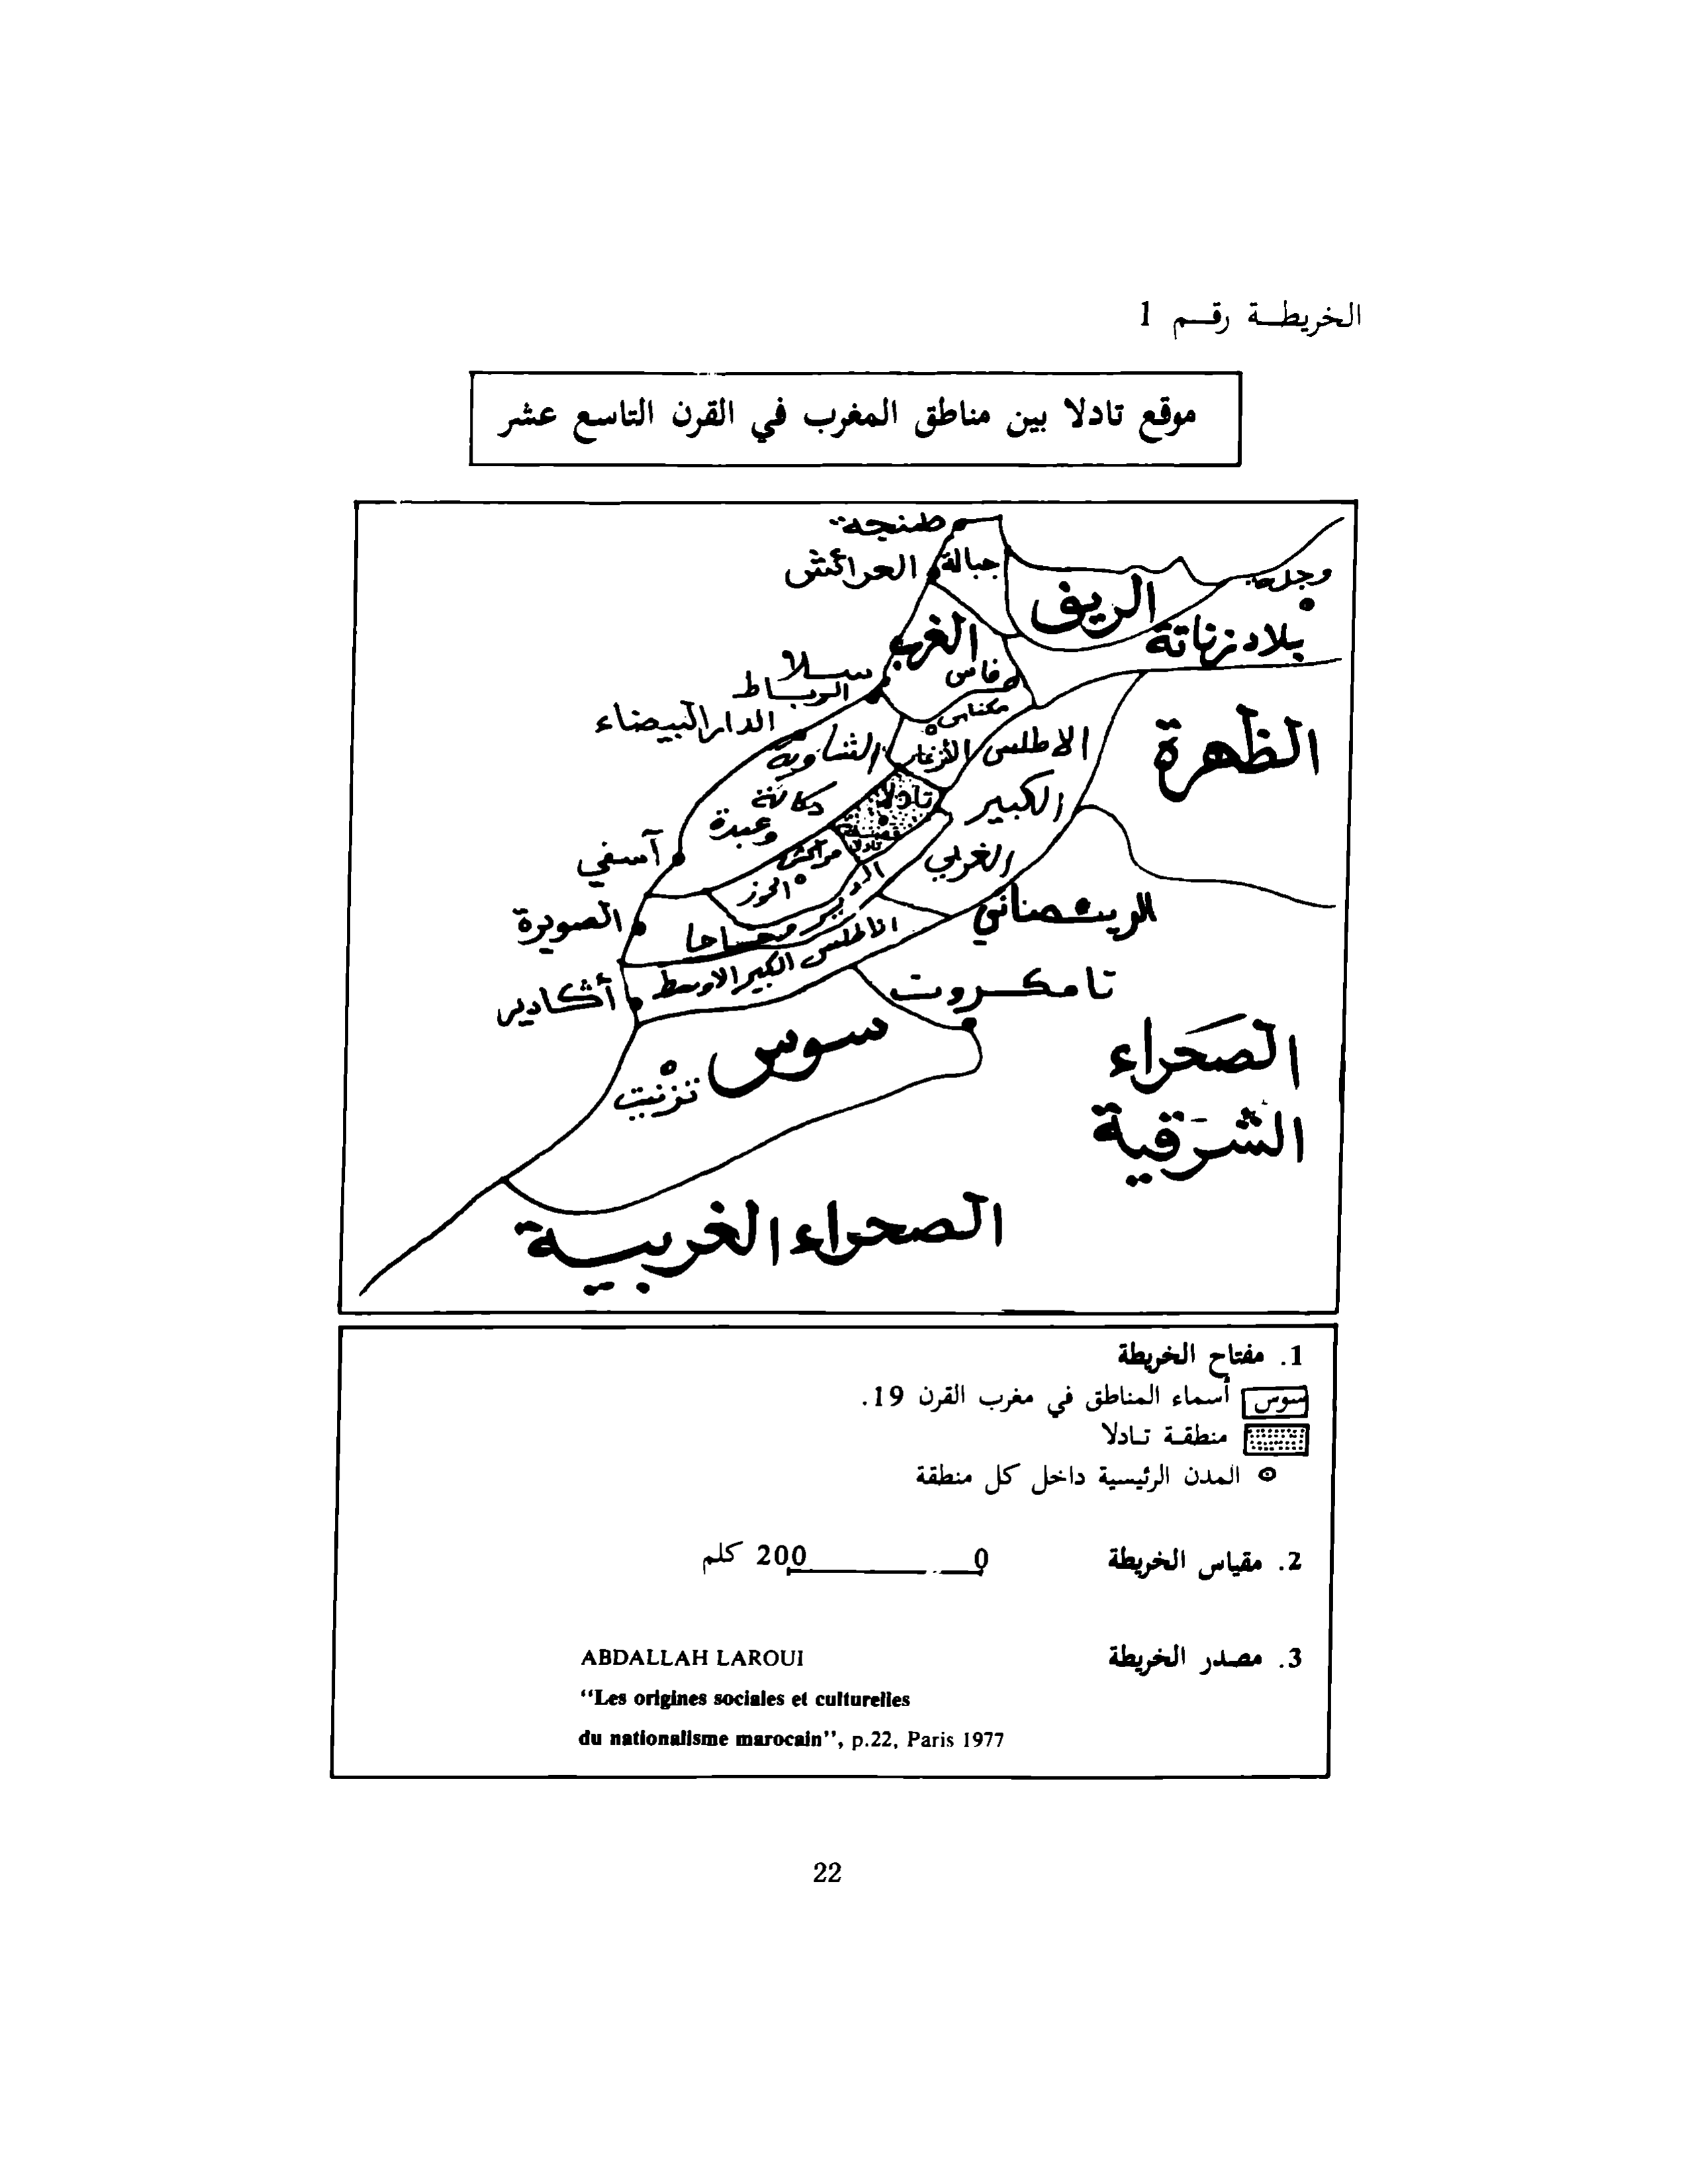 الخريطة رقم 1
موقع تادلا بين مناطق المغرب في القرن التاسع عشر
طنجة
العرائش
جبالة
الريف
وجدة
بلاد زناتة
الغرب
فاس
سلا
الرباط
مكناس
الدار البيضاء
الشاوية
الأزغار
الاطلس
الكبير
الغربي
الظهرة
تادلا
قصبة
تادلا
دكالة
وعبدة
مراكش
الحوز
آسفي
الدير
الصويرة
حاحا
الريصاني
الاطلس الكبير الاوسط
أكادير
تامكروت
سوس
تزنيت
الصحراء
الشرقية
الصحراء الغربية
1. مفتاح الخريطة
سوس أسماء المناطق في مغرب القرن 19.
منطقة تادلا
المدن الرئيسية داخل كل منطقة
2. مقياس الخريطة 0 200 كلم
3. مصدر الخريطة ABDALLAH LAROUI
“Les origines sociales et culturelles
du nationalisme marocain”, p.22, Paris 1977
22